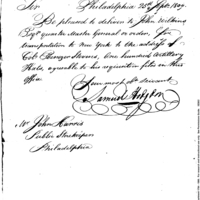 Sir Philadelphia 25th Sept. 1807.
Be pleased to deliver to John Wilkins
Esqr quarter Master General or order, for
transportation to New York to the address of
Colo. Ebenezer Stevens, One hundred Artillery
Hats, agreeable to his requisition filed in this
Office
Your most obt servant
Samuel Hodgdon
Mr John Harris
Public Storekeeper
Philadelphia